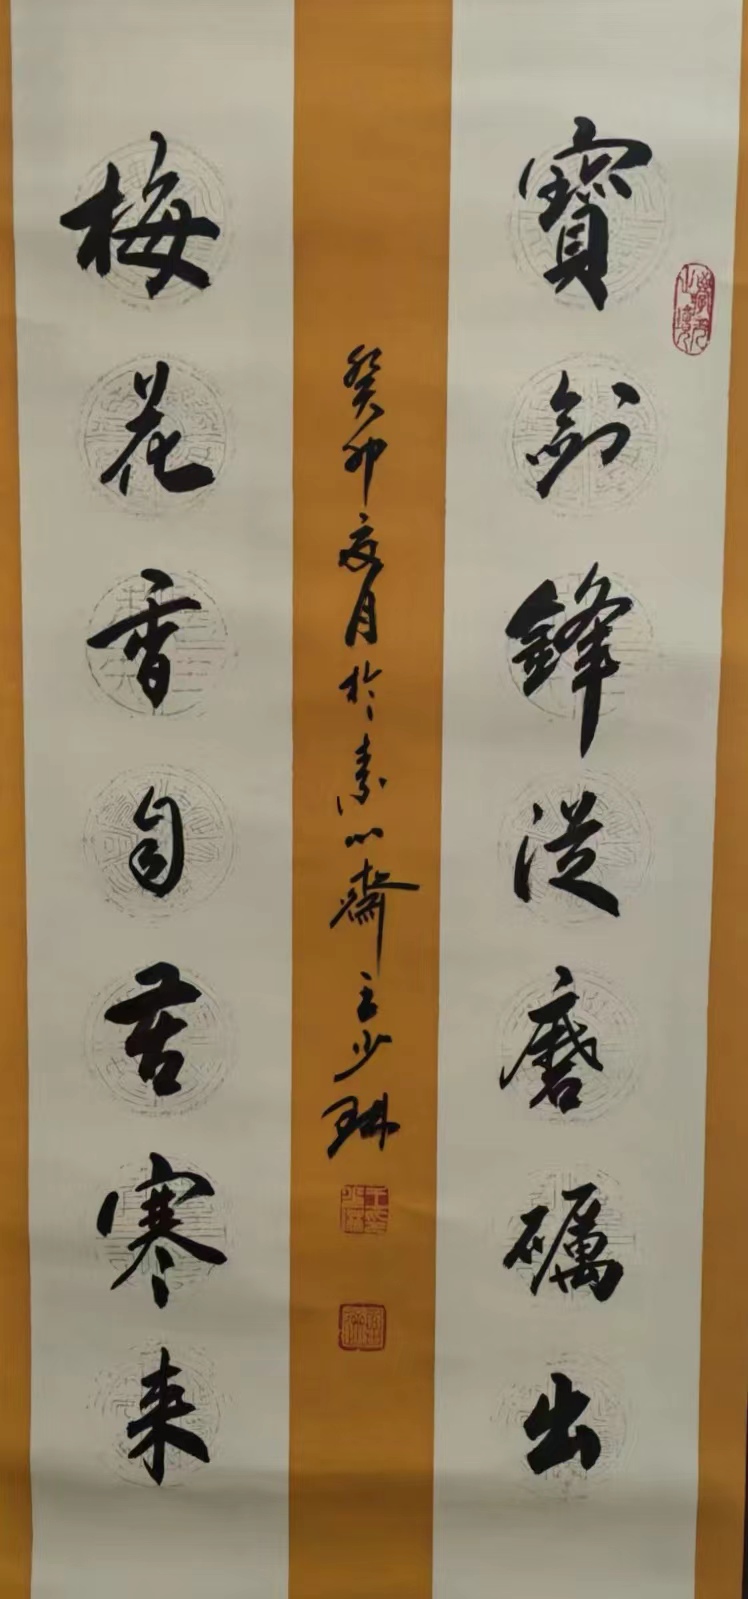 寶劍鋒從磨礪出
梅花香自苦寒来
癸卯夏月於素心齋王少琳